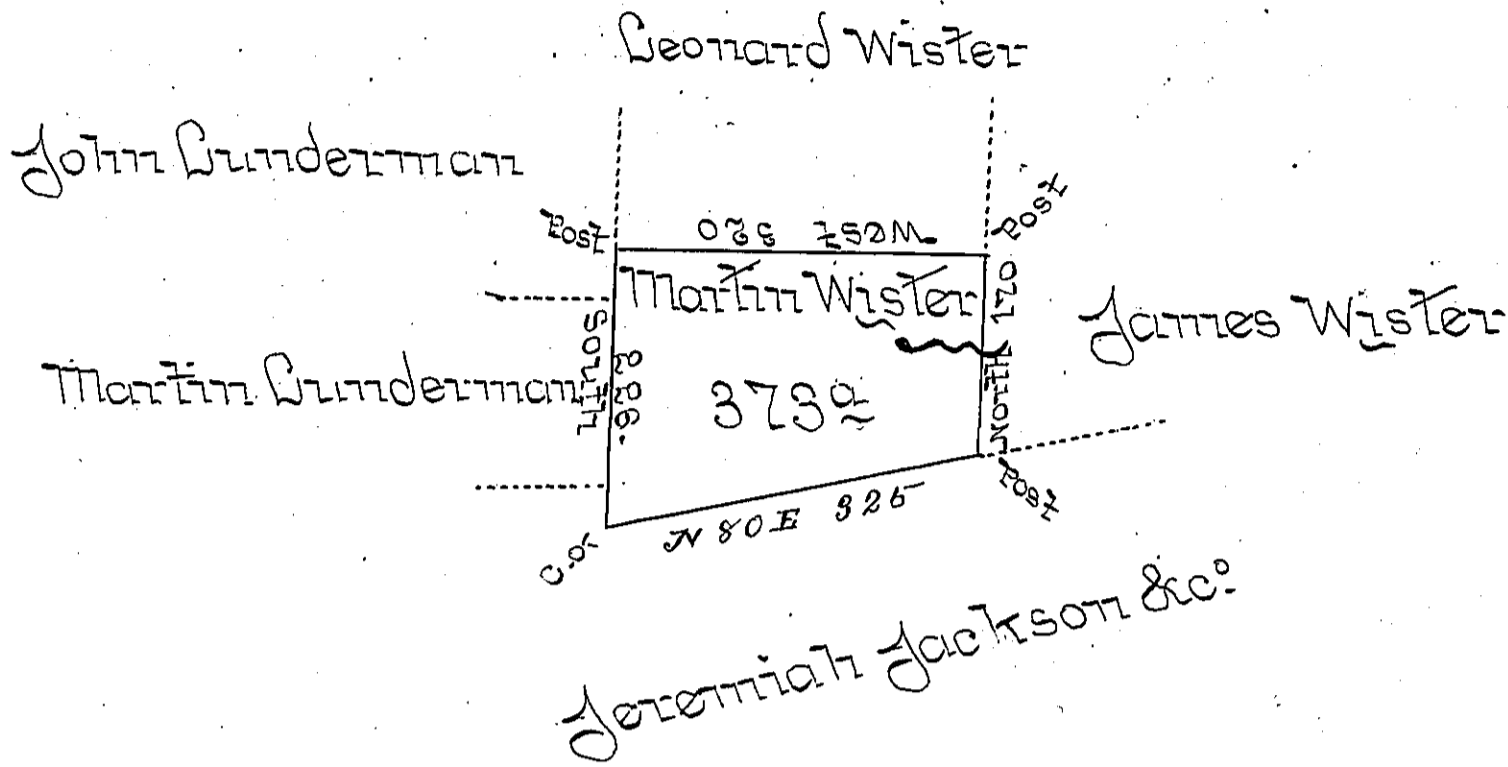 Leonard Wister
John Lunderman
Post
West 320
Post
Martin Wister
North 170
James Wister
South 226.
Martin Lunderman
373 a
Post
N 80 E 325
C.O.
Jeremiah Jackson &co.